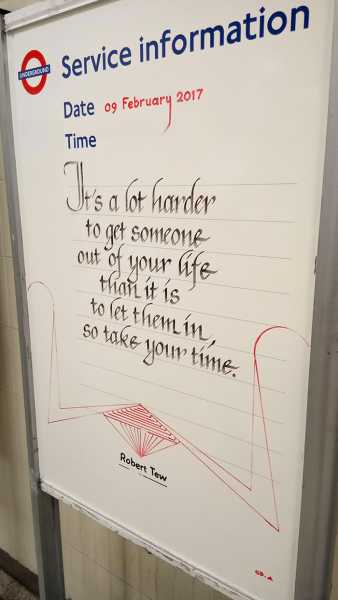 UNDERGROUND
Service information
Date 09 February 2017
Time
It's a lot harder
to get someone
out of your life
than it is
to let them in,
so take your time.
Robert Tew